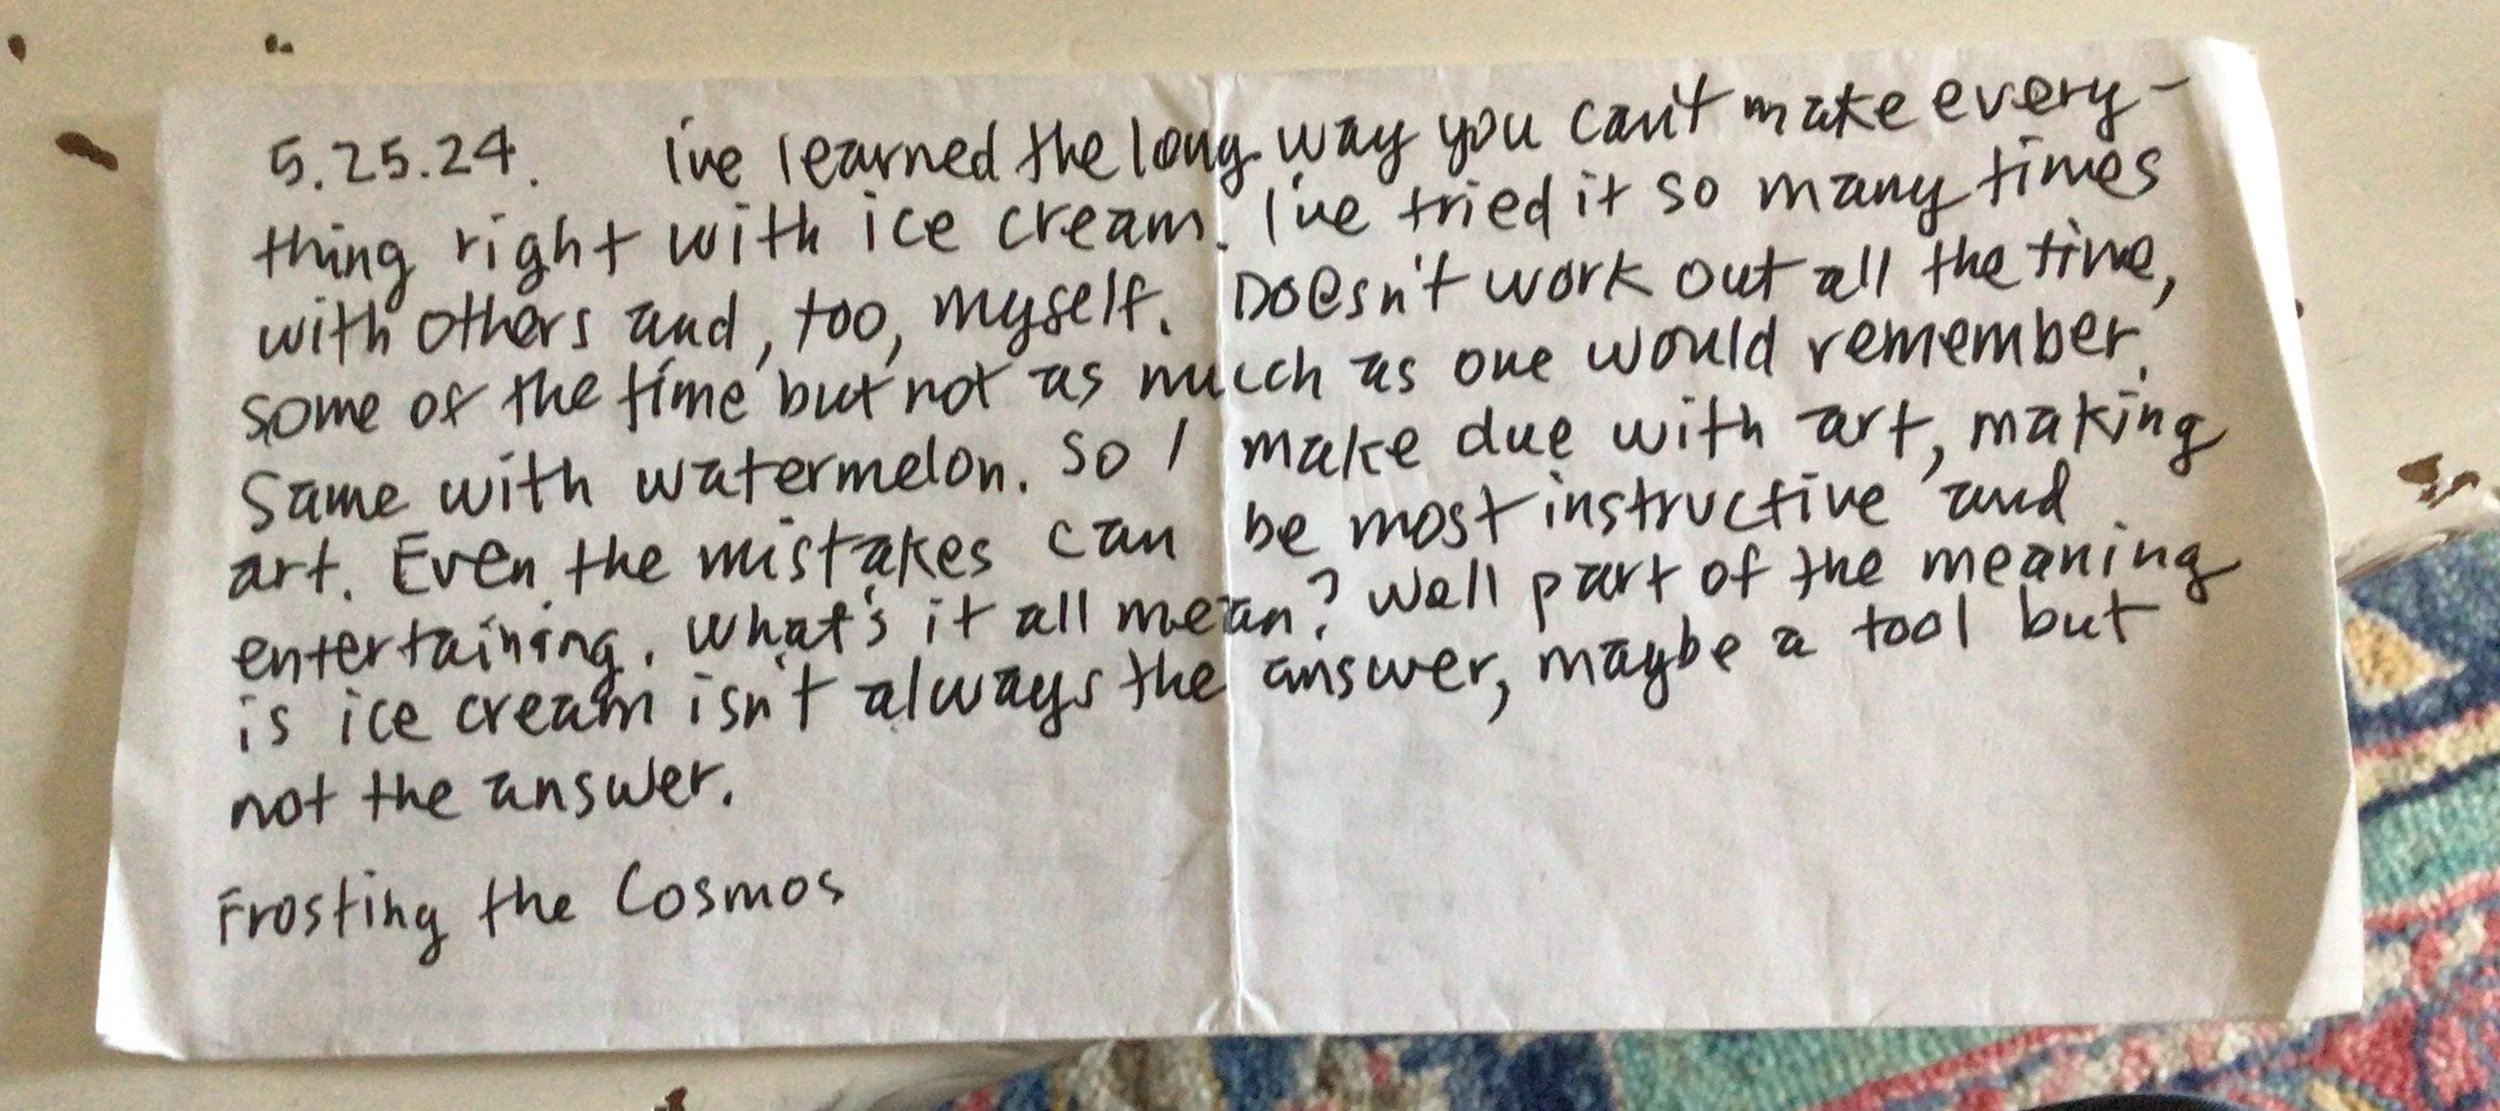 5.25.24. I've learned the long way you can't make every-
thing right with ice cream. I've tried it so many times
with others and, too, myself. Doesn't work out all the time,
some of the time but not as much as one would remember.
Same with watermelon. So I make due with art, making
art. Even the mistakes can be most instructive and
entertaining. What's it all mean? Well part of the meaning
is ice cream isn't always the answer, maybe a tool but
not the answer.
Frosting the Cosmos